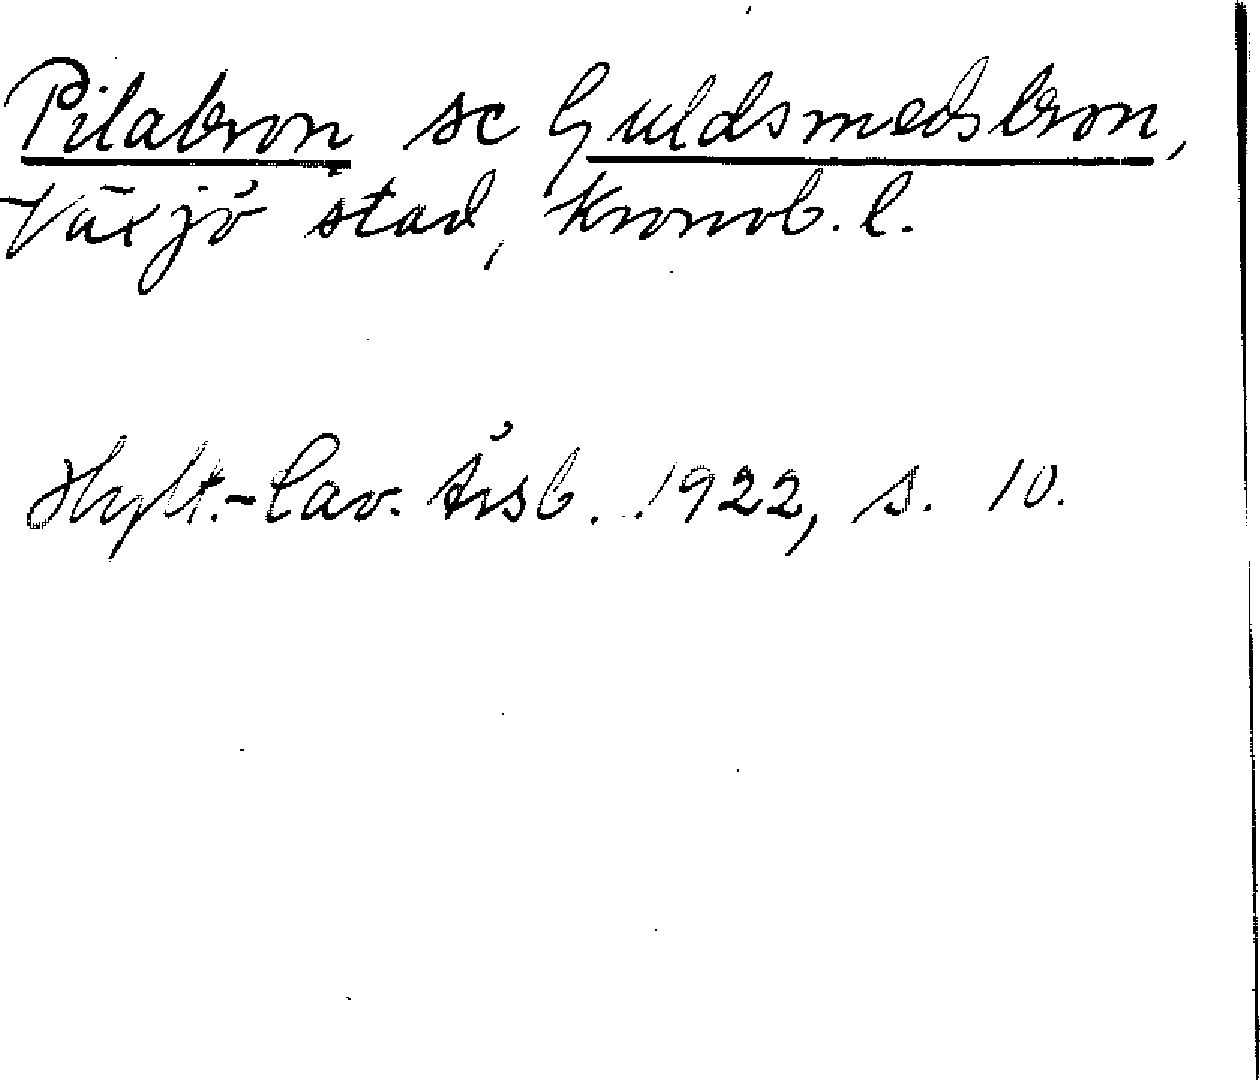 Pilabron se Guldsmedsbron,
Växjö stad, Kronob. l.
Hylt.-Cav. Årsb. 1922, s. 10.